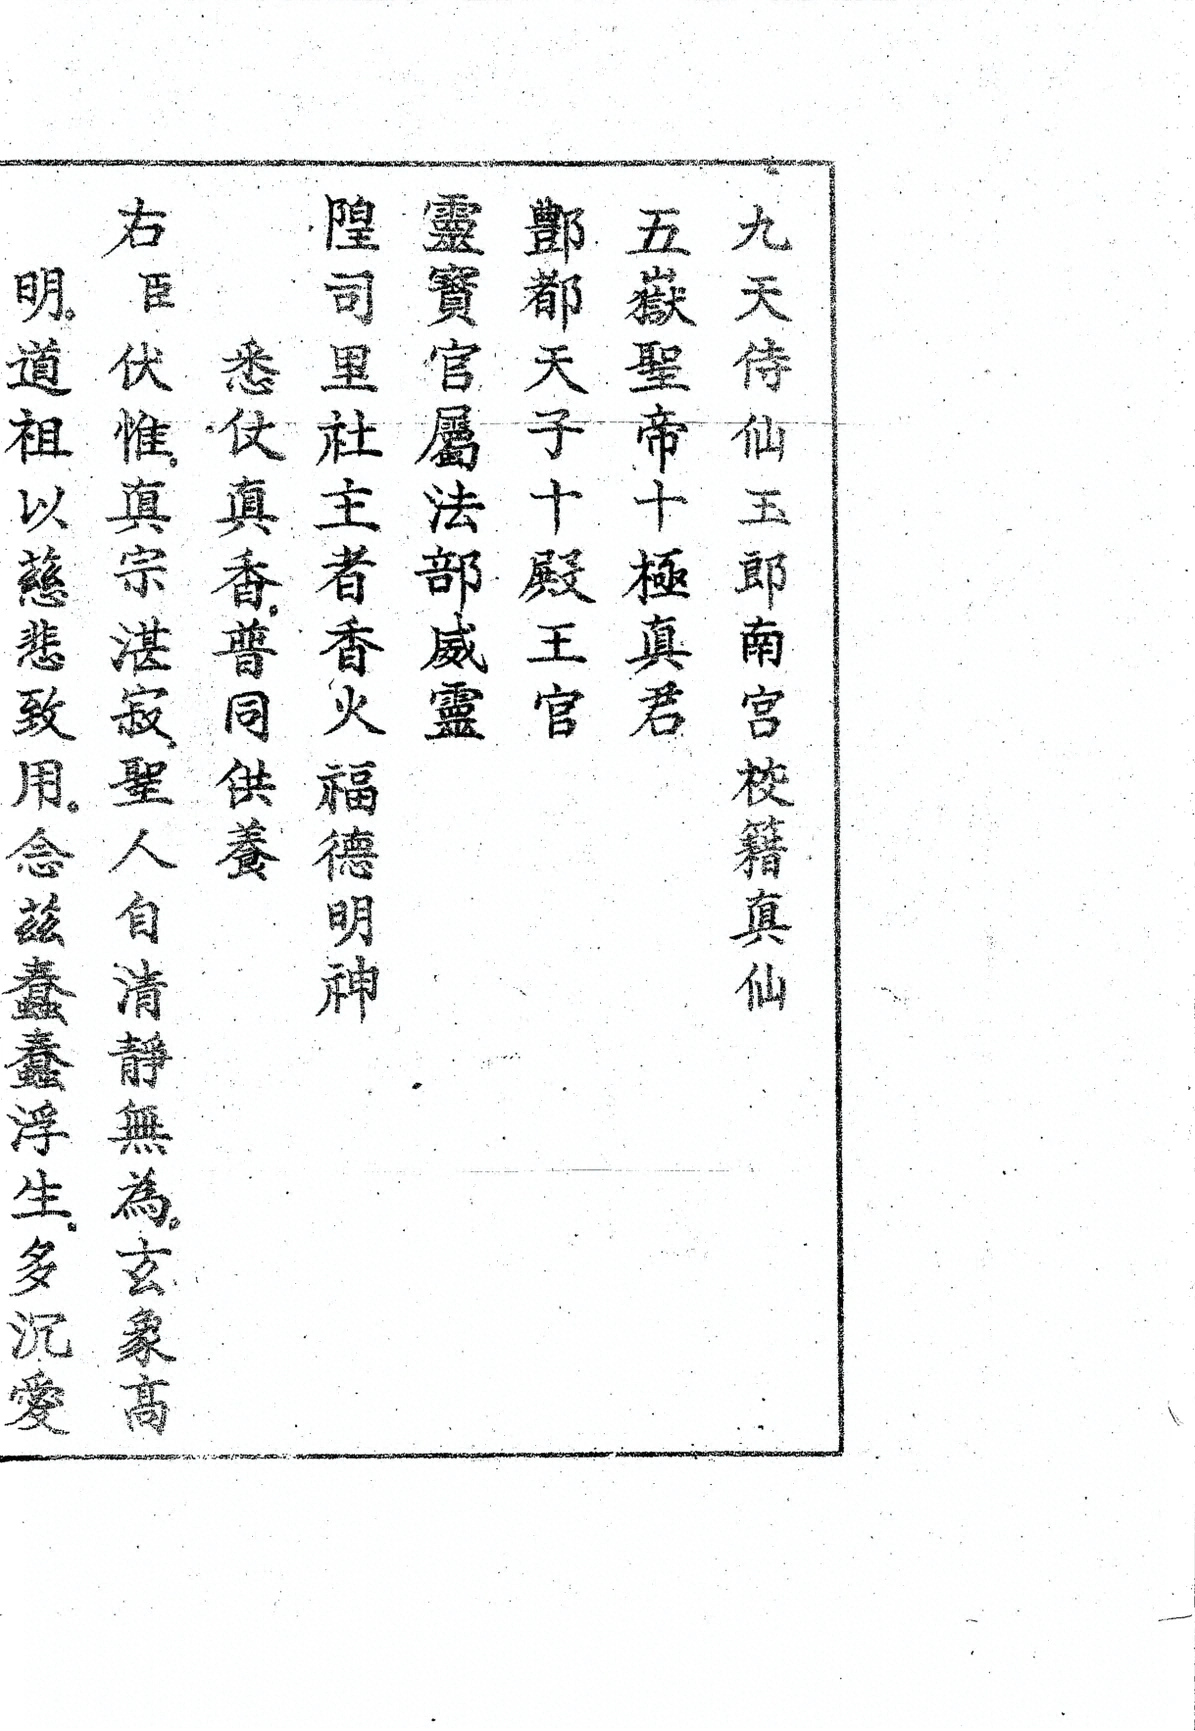 九天侍仙玉郎南宮校籍真仙
五嶽聖帝十極真君
酆都天子十殿王官
靈寶官屬法部威靈
隍司里社主者香火福德明神
悉仗真香。普同供養
右臣伏惟。真宗湛寂。聖人自清靜無為。玄象高
明。道祖以慈悲致用。念茲蠢蠢浮生。多沉愛